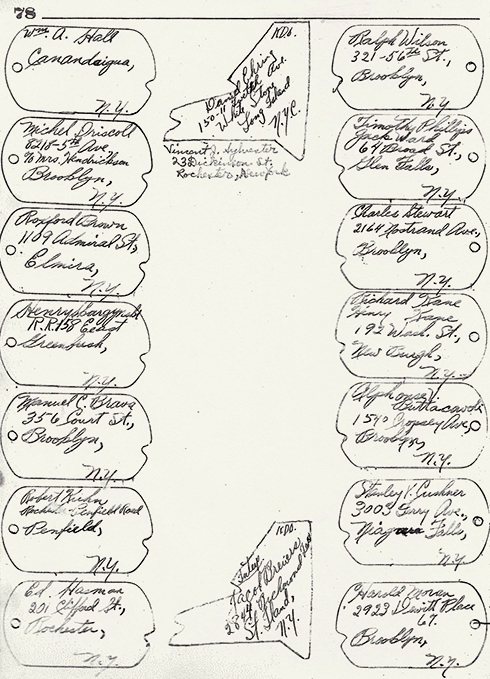 78
Wm. A. Hall
Canandaigua,
N.Y.
Michel Driscoll
8218-5th Ave,
% Mrs. Hendrickson
Brooklyn,
N.Y.
Roxford Brown
1109 Admiral St.,
Elmira,
N.Y.
Henry
R.R. 158 East
Greenbush,
N.Y.
Manuel C. Brava
356 Court St.,
Brooklyn,
N.Y.
Robert Kuhn
Rochester - Penfield Road
Penfield,
N.Y.
Ed. Hasman
201 Clifford St.,
Rochester,
N.Y.
KDO.
David
150-11 Ave.
White Stone
Long Island
N.Y.C.
Vincent J. Sylvester
23 Dickinson St,
Rochester, New York
KDO.
Jacob Breiers
2844 Richmond Road
St. Island,
N.Y.
Ralph Wilson
321-56th St.,
Brooklyn,
N.Y.
Timothy Phillips
Jack Ward
64 Broad St.,
Glen Falls,
N.Y.
Charles Stewart
2164 Nostrand Ave.,
Brooklyn,
N.Y.
Richard Kane
Henry Kane
192 Wash. St.,
New Burgh,
N.Y.
1540 Cropsey Ave,
Brooklyn,
N.Y.
Stanley V. Cushner
3003 Ferry Ave.,
Niagara Falls,
N.Y.
Harold Moran
2923 Dewitt Place
67.
Brooklyn,
N.Y.